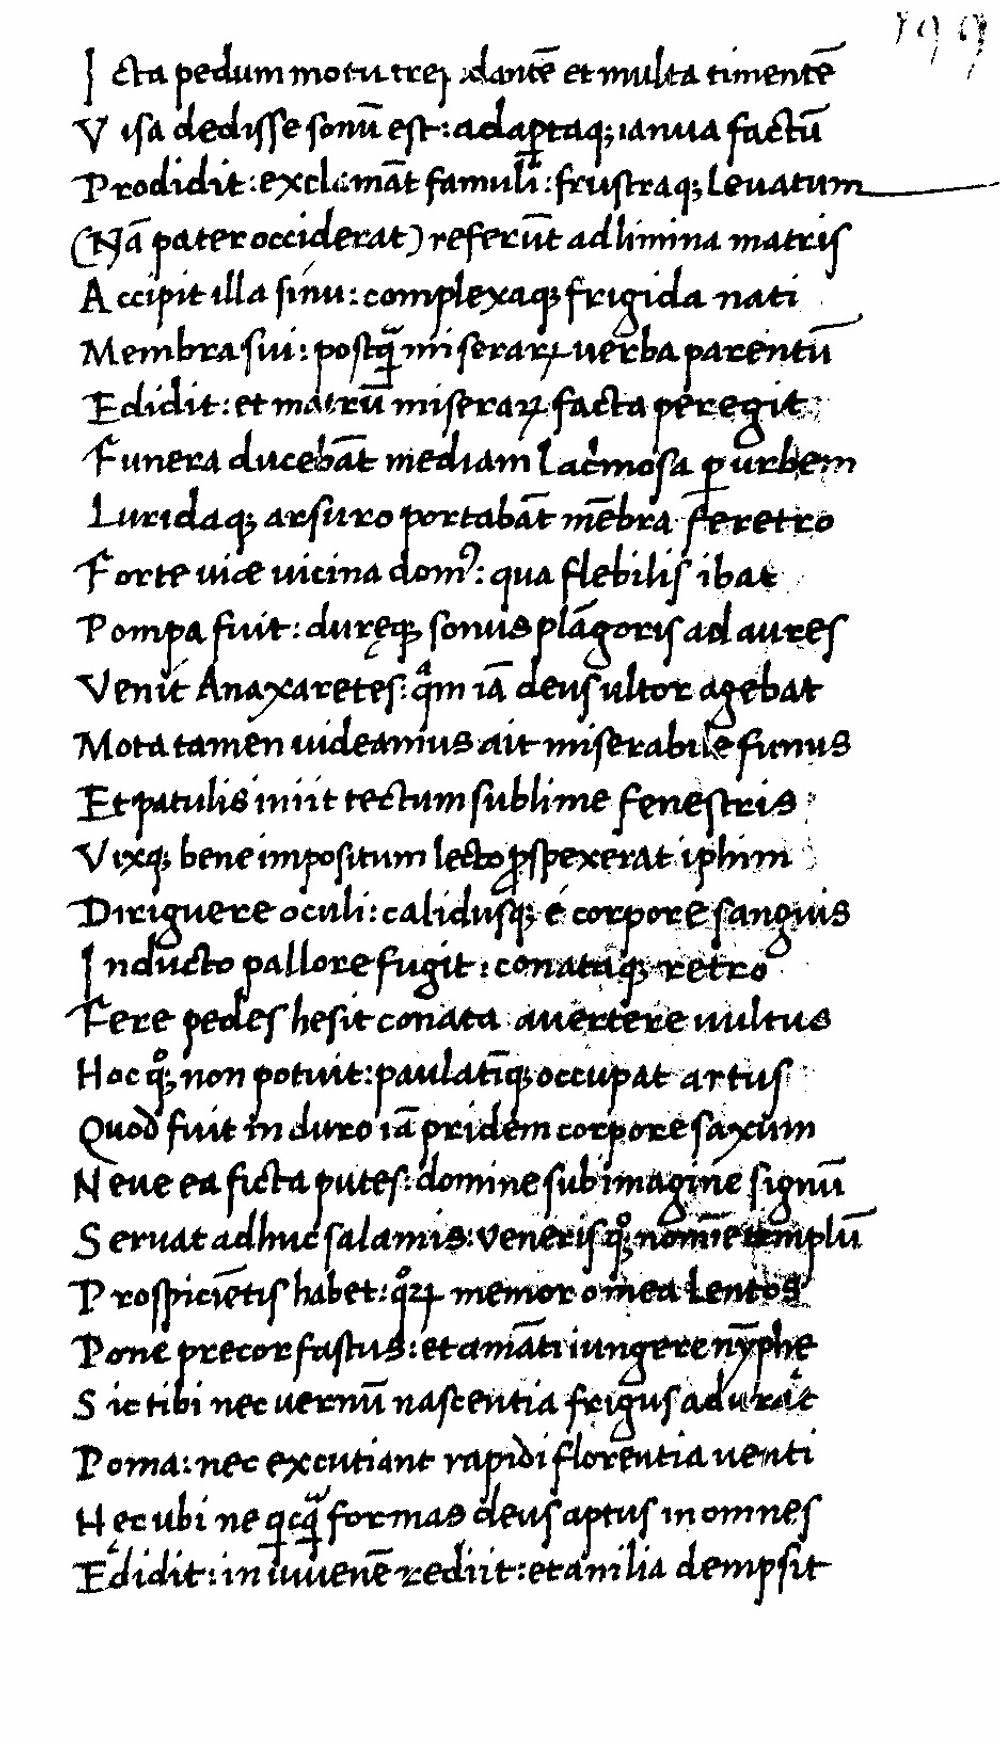 199
Icta pedum motu trep̱idantē et multa timentē
Visa dedisse sonū est: adap̱taq; ianua factū
Prodidit: exclamāt famuli: frustraq; levatum
(Nā pater occiderat) referūt ad limina matris
Accipit illa sinu: complexaq; frigida nati
Membra sui: postq̄ miseraꝝ verba parentū
Edidit: et matrū miseraꝝ facta peregit
Funera ducebāt mediam lacrmosa ꝑ urbem
Luridaq; arsuro portabāt mēbra feretro
Forte vice vicina domꝰ: qua flebilis ibat
Pompa fuit: duręq; sonus plāgoris ad aures
Venit Anaxaretes: qᵃm iā deus ultor agebat
Mota tamen videamus ait miserabile funus
Et patulis iniit tectum sublime fenestris
Vixq; bene impositum lecto ꝓspexerat iphim
Diriguere oculi: calidusq; é corpore sanguis
Inducto pallore fugit: conataq; retro
Fere pedes hesit conata avertere vultus
Hoc qͦ; non potuit: paulatīq; occupat artus
Quod fuit in duro iā pridem corpore saxum
Neve ea ficta putes: domine sub imagine signū
Servat adhuc salamis: veneris qͦ; nomīe templū
Prospiciētis habet: qͦꝝ memor o mea lentos
Pone precor fastus: et amāti iungere nȳphe
Sic tibi nec vernū nascentia frigus adurat
Poma: nec excutiant rapidi florentia venti
Hęc ubi ne qͥcq̄ formas deus aptus in omnes
Edidit: in iuvenē rediit: et anilia dempsit